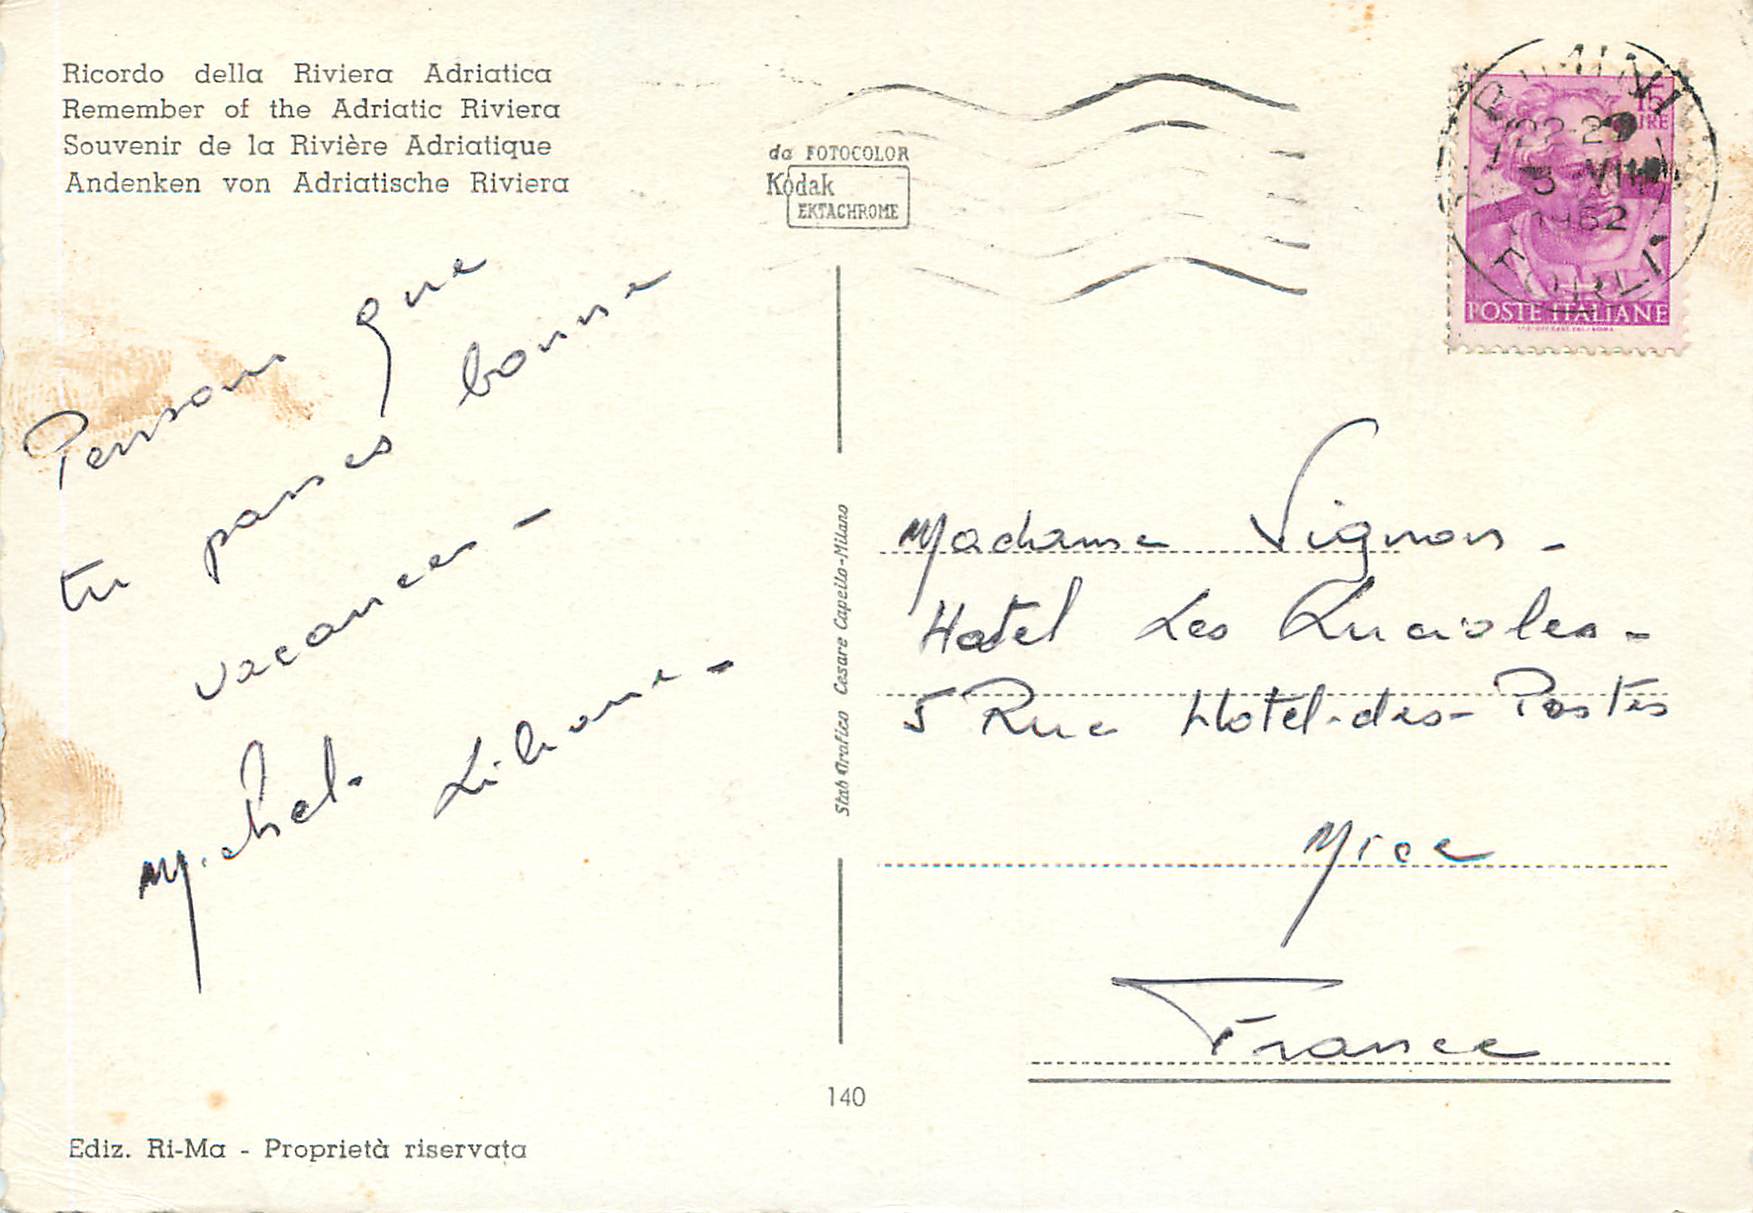 Ricordo della Riviera Adriatica
Remember of the Adriatic Riviera
Souvenir de la Rivière Adriatique
Andenken von Adriatische Riviera
da FOTOCOLOR
Kodak
EKTACHROME
RIMINI
22-23
3-VIII
1962
FORLÌ
15
LIRE
POSTE ITALIANE
Pensons que
tu passes bonne
vacances -
Michel. Liliane -
Madame Vignon -
Hotel Les Lucioles -
5 Rue Hotel-des-Postes
Nice
France
Stab Grafico Cesare Capello-Milano
140
Ediz. Ri-Ma - Proprietà riservata